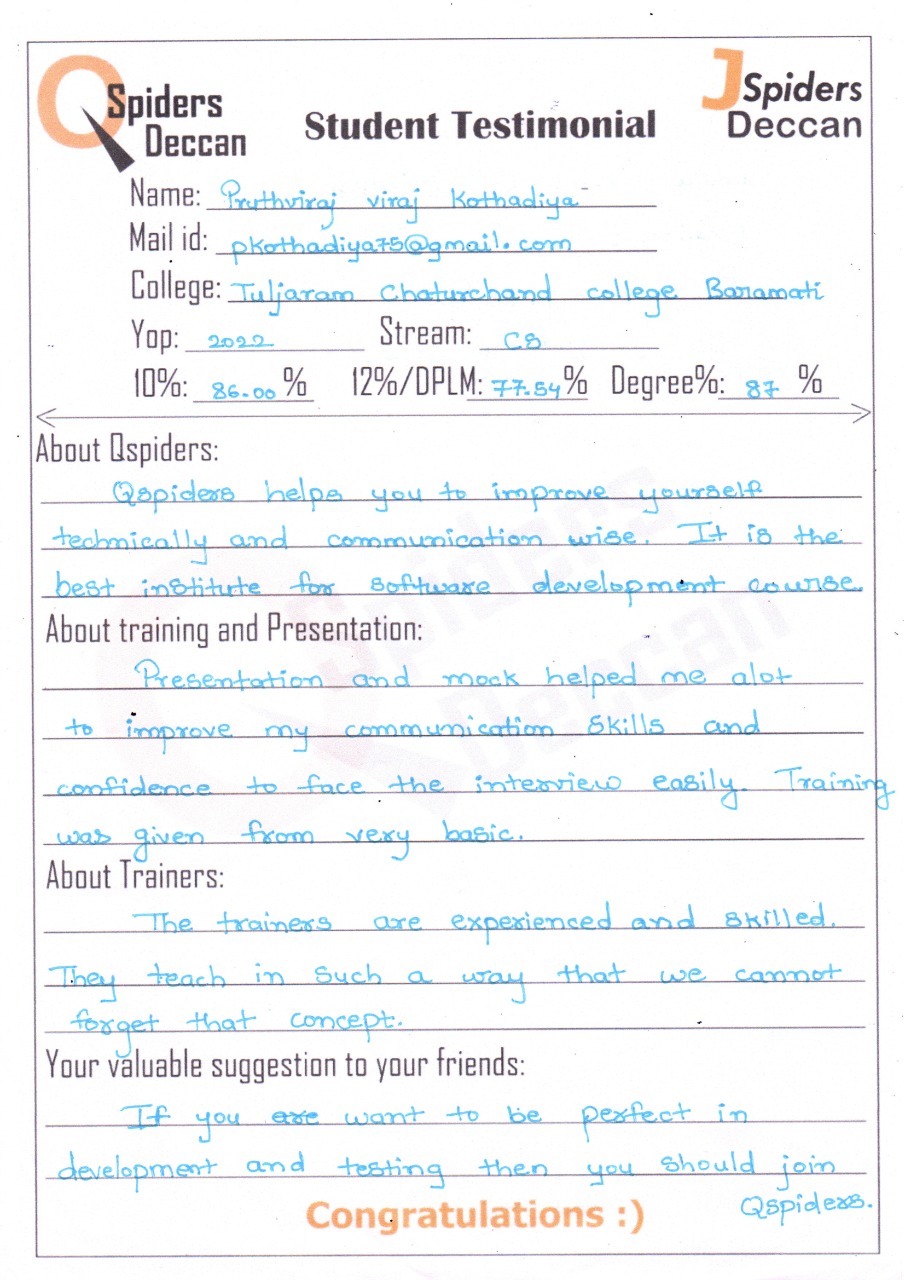 QSpiders
Deccan
Student Testimonial
JSpiders
Deccan
Name: Pruthviraj viraj Kothadiya
Mail id: pkothadiya75@gmail.com
College: Tuljaram Chaturchand college Baramati
Yop: 2022 Stream: CS
10%: 86.00 % 12%/DPLM: 77.54 % Degree%: 87 %
About Qspiders:
Qspiders helps you to improve yourself
technically and communication wise. It is the
best institute for software development course.
About training and Presentation:
Presentation and mock helped me alot
to improve my communication skills and
confidence to face the interview easily. Training
was given from very basic.
About Trainers:
The trainers are experienced and skilled.
They teach in such a way that we cannot
forget that concept.
Your valuable suggestion to your friends:
If you are want to be perfect in
development and testing then you should join
Qspiders.
Congratulations :)